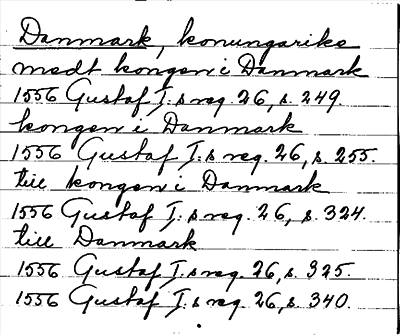 Danmark, konungarike
medt kongen i Danmark
1556 Gustaf I:s reg. 26, s. 249.
kongen i Danmark
1556 Gustaf I:s reg. 26, s. 255.
till kongen i Danmark
1556 Gustaf I:s reg. 26, s. 324.
till Danmark
1556 Gustaf I:s reg. 26, s. 325.
1556 Gustaf I:s reg. 26, s. 340.